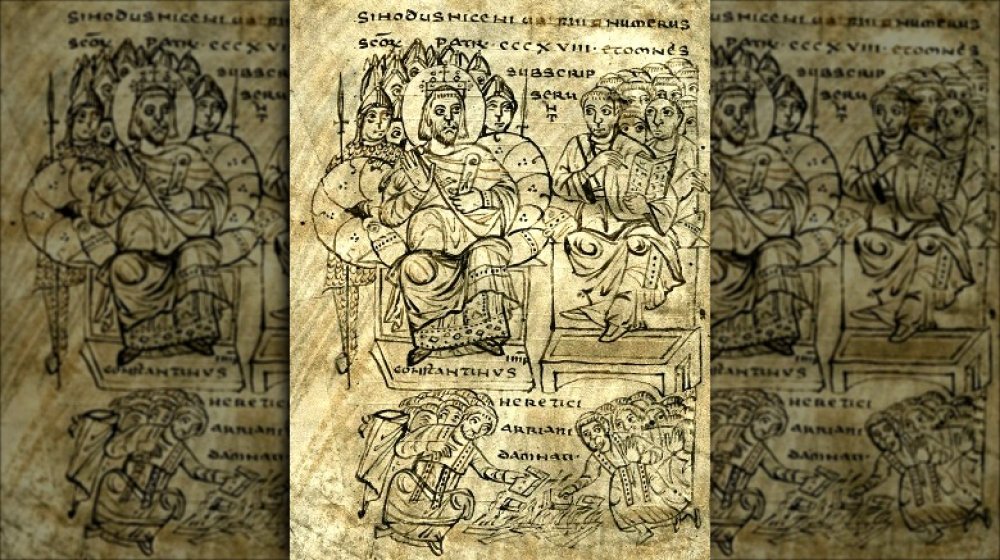 SINODUS NICENI NUMERUS
SCŌR PATR·CCCXVIII·ETOMNES
SUBSCRIP
SERU
N
T
IMP
CONSTANTINUS
HERETICI
ARRIANI
DAMNATI·